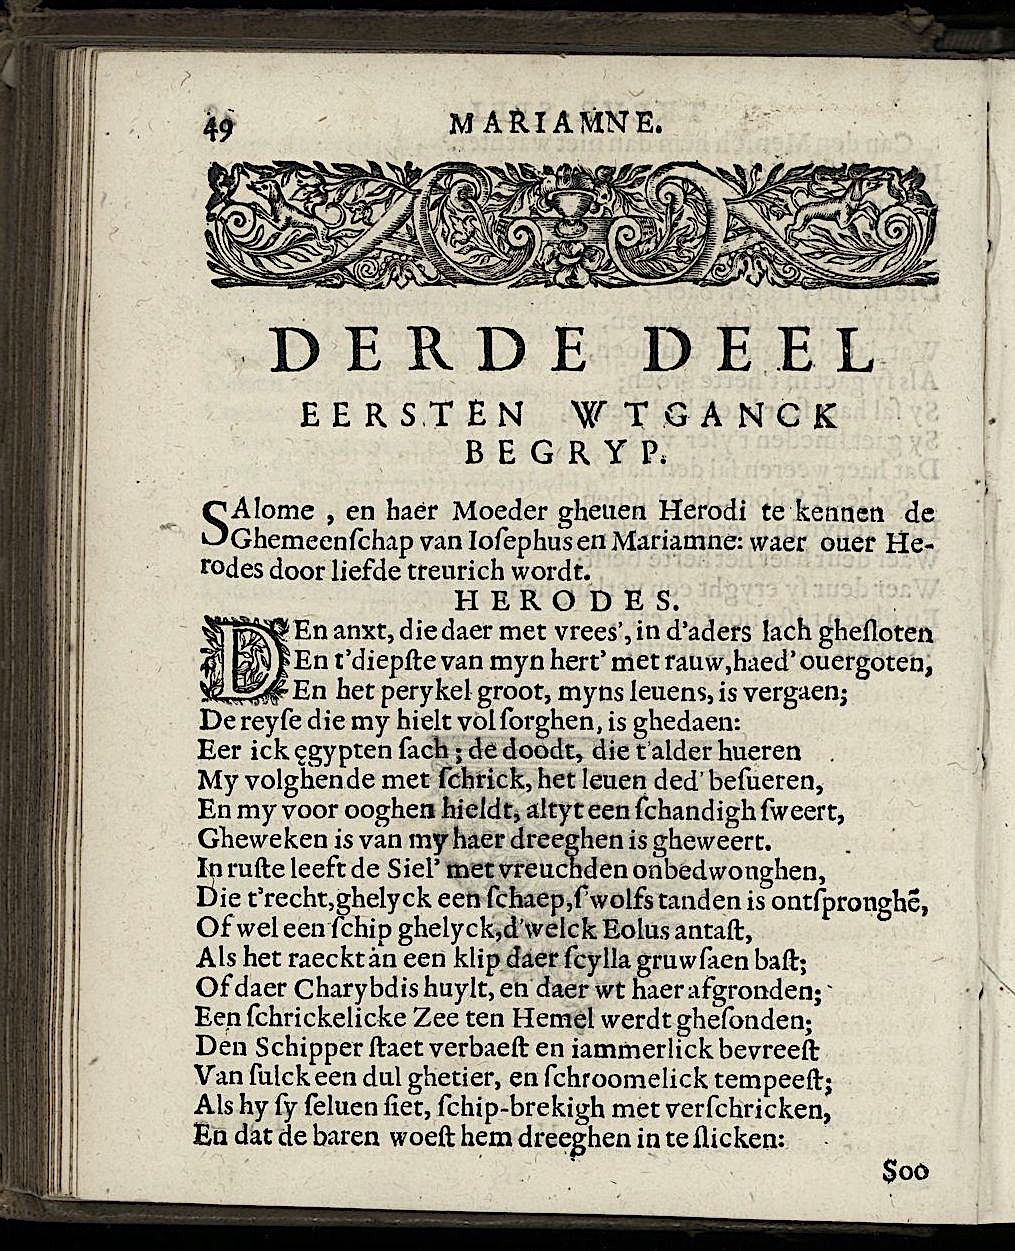 49
MARIAMNE.
DERDE DEEL
EERSTEN WTGANCK
BEGRYP.
SAlome , en haer Moeder gheuen Herodi te kennen de
Ghemeenſchap van Ioſephus en Mariamne: waer ouer He-
rodes door liefde treurich wordt.
HERODES.
DEn anxt, die daer met vrees', in d'aders lach gheſloten
En t'diepſte van myn hert' met rauw, haed' ouergoten,
En het perykel groot, myns leuens, is vergaen;
De reyſe die my hielt vol ſorghen, is ghedaen:
Eer ick ęgypten ſach ; de doodt, die t'alder hueren
My volghende met ſchrick, het leuen ded' beſueren,
En my voor ooghen hieldt, altyt een ſchandigh ſweert,
Gheweken is van my haer dreeghen is gheweert.
In ruſte leeft de Siel' met vreuchden onbedwonghen,
Die t'recht, ghelyck een ſchaep, ſ'wolfs tanden is ontſpronghē,
Of wel een ſchip ghelyck, d'welck Eolus antaſt,
Als het raeckt an een klip daer ſcylla gruwſaen baſt;
Of daer Charybdis huylt, en daer wt haer afgronden;
Een ſchrickelicke Zee ten Hemel werdt gheſonden;
Den Schipper ſtaet verbaeſt en iammerlick bevreeſt
Van ſulck een dul ghetier, en ſchroomelick tempeeſt;
Als hy ſy ſeluen ſiet, ſchip-brekigh met verſchricken,
En dat de baren woeſt hem dreeghen in te ſlicken:
Soo